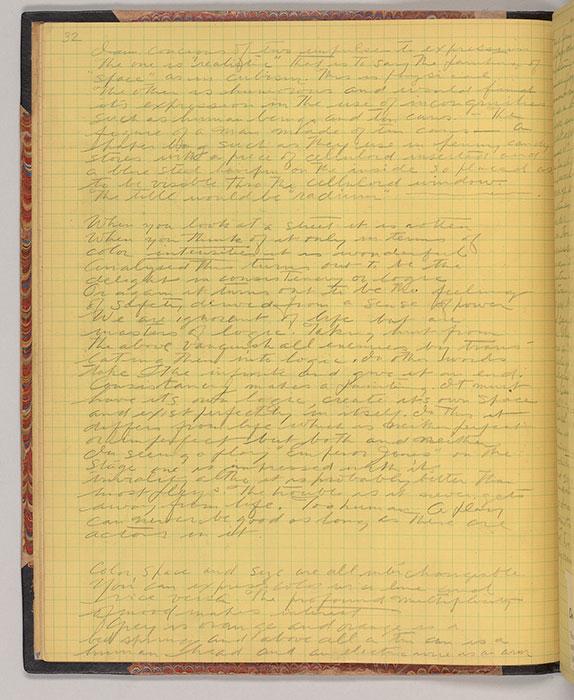 32
I am concious of two impulses to expression
The one is "realistic" that is to say the painting of
"space" as in cubism. This is physical
The other is humorous and would find
its expression in the use of incongruities
such as human beings and tin cans. The
figure of a man made of tin cans — a
paper bag such as they use in penny candy
stores with a piece of celluloid inserted and
a blue steel hairpin on the inside so placed as
to be visable thru the celluloid window.
The title would be "radium"
When you look at a street it is rotten
When you think of it only in terms of
color intensities it is wonderful
Analysed this turns out to be the
delight in consistancy or logic
Or again it turns out to be the feeling
of safety derived from a sense of power
We are ignorant of life but are
masters of logic. Taking hint from
the above vanquish all enemies by trans-
lating them into logic. In other words
take the infinite and give it an end.
Consistancy makes a painting. It must
have its own logic create it's own space
and exist perfectly in itself. In this it
differs from life which is neither perfect
or imperfect but both and neither
In seeing a play, "Emperor Jones" on the
stage one is impressed with its
altho it is probably better than
most plays. The trouble is it never gets
away from life. Too human. A play
can never be good as long as there are
actors in it.
Color space and size are all interchangeable
You can express color as a line and
vice versa. The profound multiplicity
of mood makes interest
Grey is orange and orange is a
bed spring and above all a tin can is a
human head and an electric wire is an arm